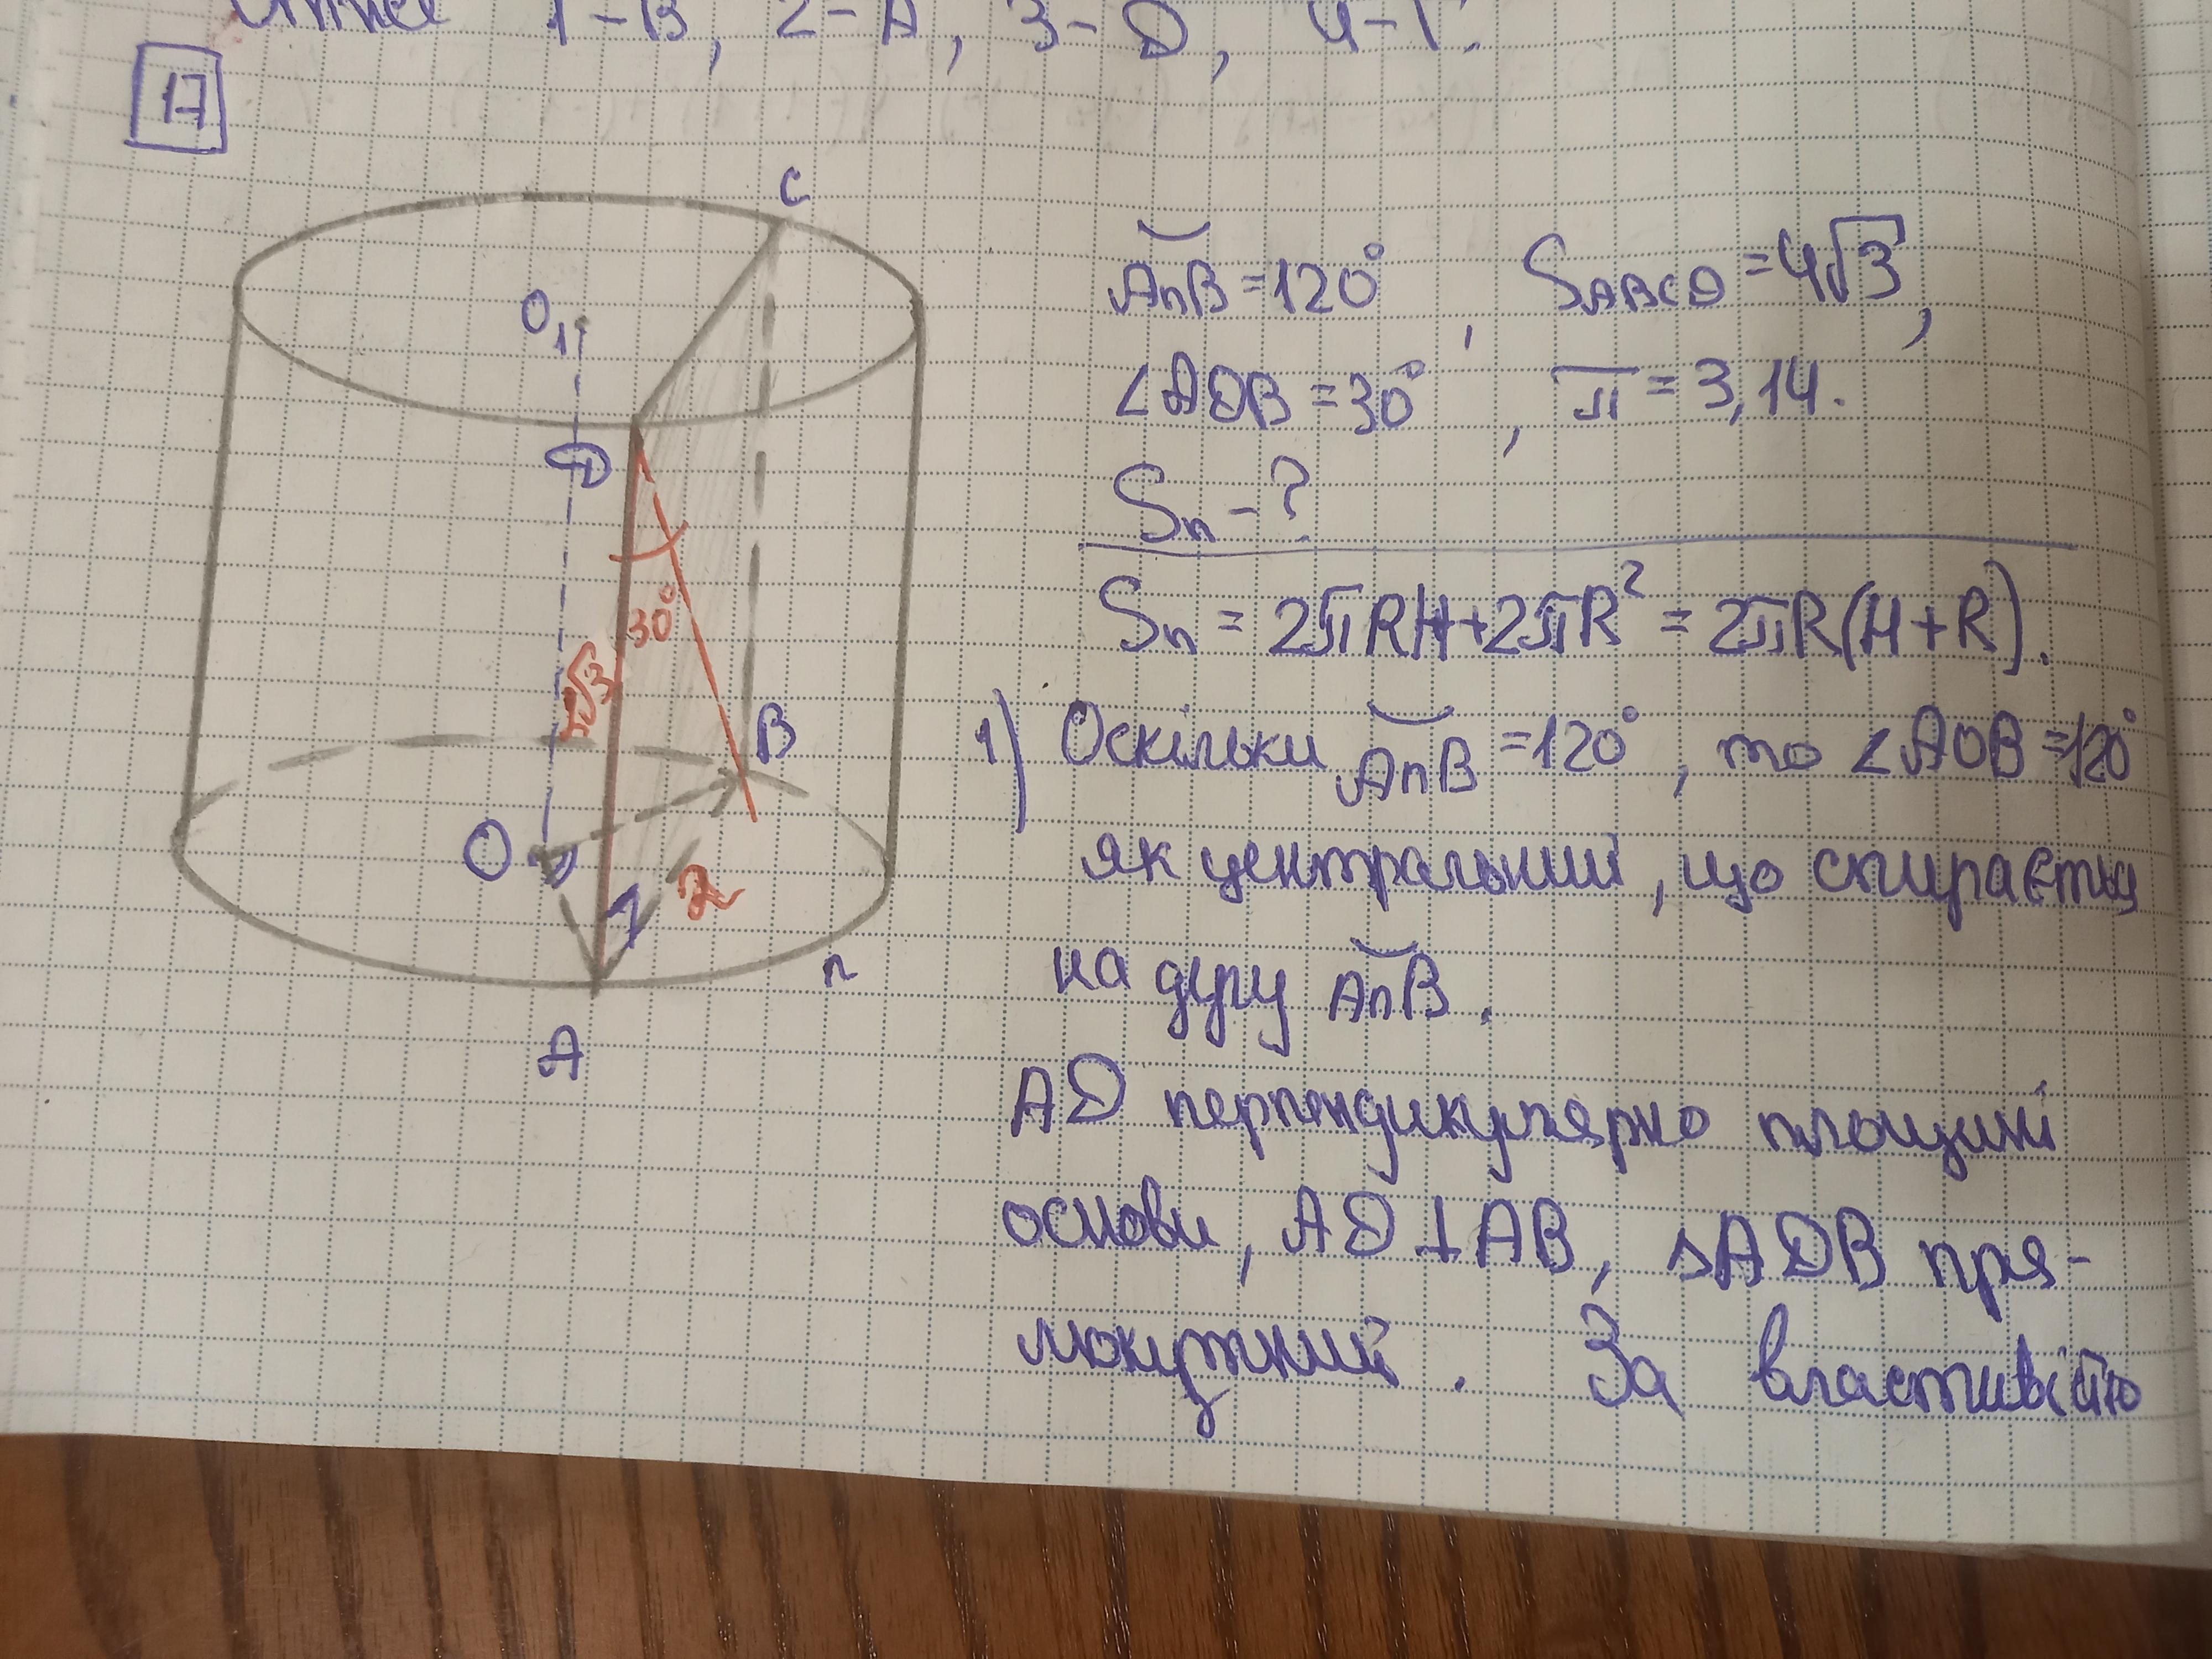 1-В, 2-А, 3-D, 4-Г.
17
C
O₁
D
30°
2√3
B
O
2
n
A
AnB = 120°, S_ABCD = 4√3,
∠ADB = 30°, π = 3,14.
Sп - ?
Sп = 2πRH + 2πR² = 2πR(H+R).
1) Оскільки AnB = 120°, то ∠AOB = 120°
як центральний, що спирається
на дугу AnB.
AD перпендикулярно площині
основи, AD ⊥ AB, △ADB пря-
мокутний. За властивістю